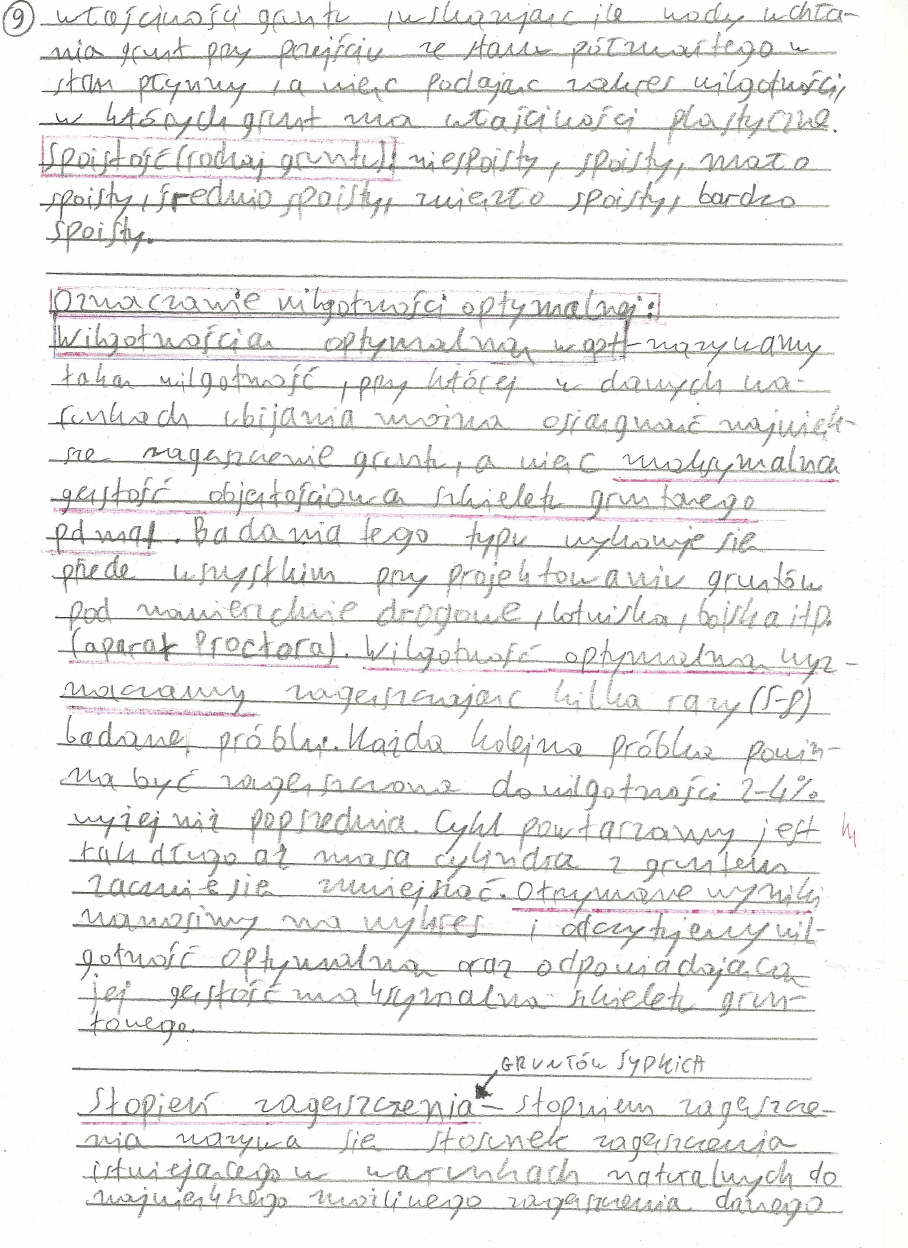 9 właściwości gruntu wskazując ile wody wchła-
nia grunt przy przejściu ze stanu półzwartego w
stan płynny, a więc podając zakres wilgotności,
w których grunt ma właściwości plastyczne.
Spoistość (rodzaj gruntu): niespoisty, spoisty, mało
spoisty, średnio spoisty, zwięzło spoisty, bardzo
spoisty.
Oznaczanie wilgotności optymalnej:
Wilgotnością optymalną w opt nazywamy
taką wilgotność, przy której w danych wa-
runkach ubijania można osiągnąć najwięk-
sze zagęszczenie gruntu, a więc maksymalną
gęstość objętościową szkieletu gruntowego
ρd max. Badania tego typu wykonuje się
przede wszystkim przy projektowaniu gruntów
pod nawierzchnie drogowe, lotniska, boiska itp.
(aparat Proctora). Wilgotność optymalną wyz-
naczamy zagęszczając kilka razy (5-8)
badanej próbki. Każda kolejna próbka powin-
na być zagęszczona do wilgotności 2-4%
wyżej niż poprzednia. Cykl powtarzamy jest
tak długo aż masa cylindra z gruntem
zacznie się zmniejszać. Otrzymane wyniki
nanosimy na wykres i odczytujemy wil-
gotność optymalną oraz odpowiadającą
jej gęstość maksymalną szkieletu grun-
towego.
GRUNTÓW SYPKICH
Stopień zagęszczenia – stopniem zagęszcze-
nia nazywa się stosunek zagęszczenia
istniejącego w warunkach naturalnych do
największego możliwego zagęszczenia danego